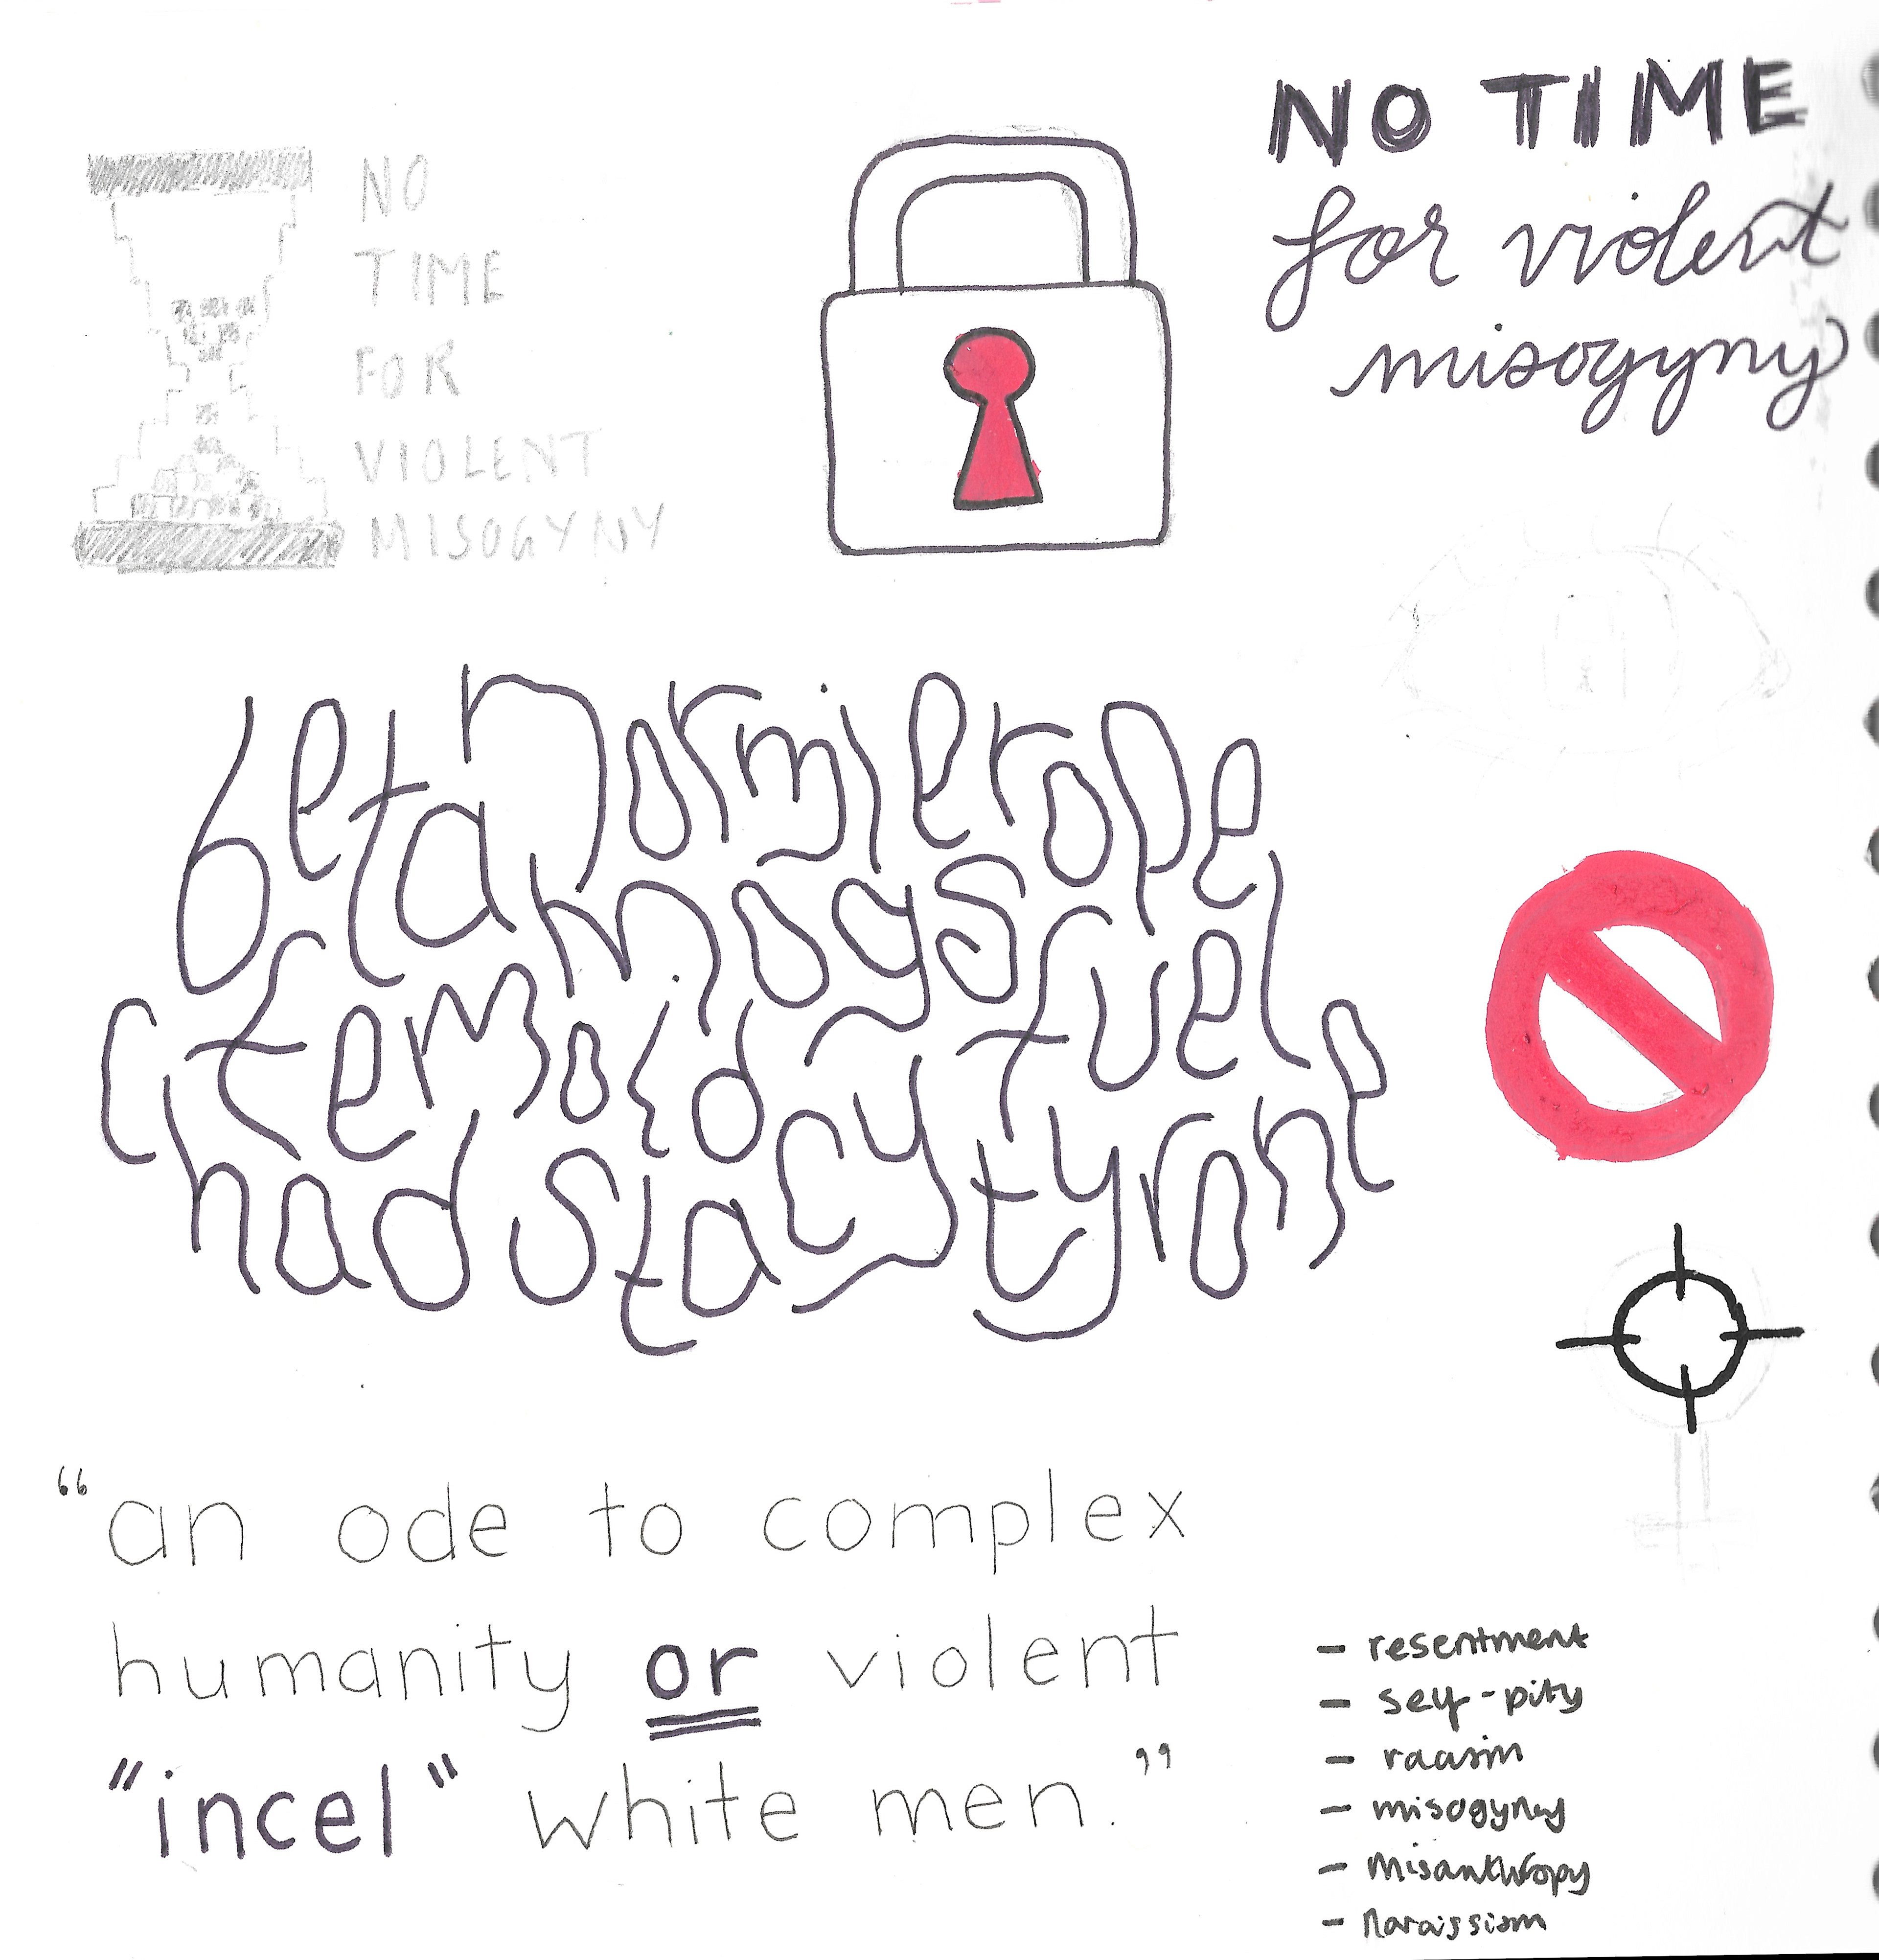 NO
TIME
FOR
VIOLENT
MISOGYNY
NO TIME
for violent
misogyny
beta normie rope
mogs fuel
femoid
chad stacy tyrone
“an ode to complex
humanity or violent
"incel" white men.”
- resentment
- self-pity
- racism
- misogyny
- misanthropy
- narcissism